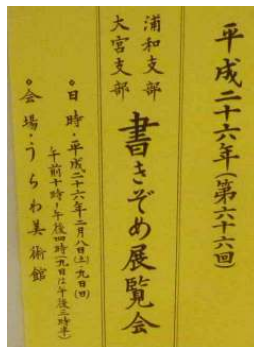 平成二十六年(第六十六回)
浦和支部
大宮支部
書きぞめ展覧会
日時・平成二十六年二月八日(土)・九日(日)
午前十時〜午後四時(九日は午後三時半)
会場・うらわ美術館